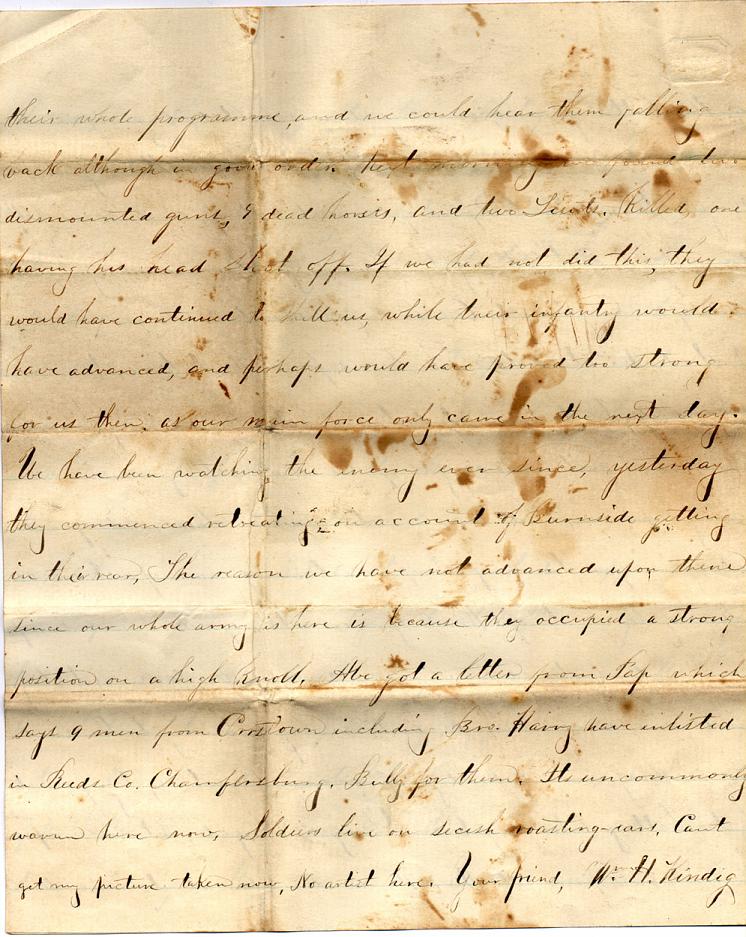 their whole programme, and we could hear them falling
back although in good order. Next morning we found two
dismounted guns, 9 dead horses, and two Lieuts. Killed, one
having his head shot off. If we had not did this, they
would have continued to kill us, while their infantry would
have advanced, and perhaps would have proved too strong
for us then, as our main force only came in the next day.
We have been watching the enemy ever since, yesterday
they commenced retreating on account of Burnside getting
in their rear, The reason we have not advanced upon them
since our whole army is here is because they occupied a strong
position on a high Knoll. Abe got a letter from Pap which
says 9 men from Crosstown including Bro. Harry have enlisted
in Reeds Co. Chambersburg. Bully for them. Its uncommonly
warm here now, Soldiers live on secesh roasting-ears, Cant
get my picture taken now, No artist here. Your friend, Wm H. Kindig